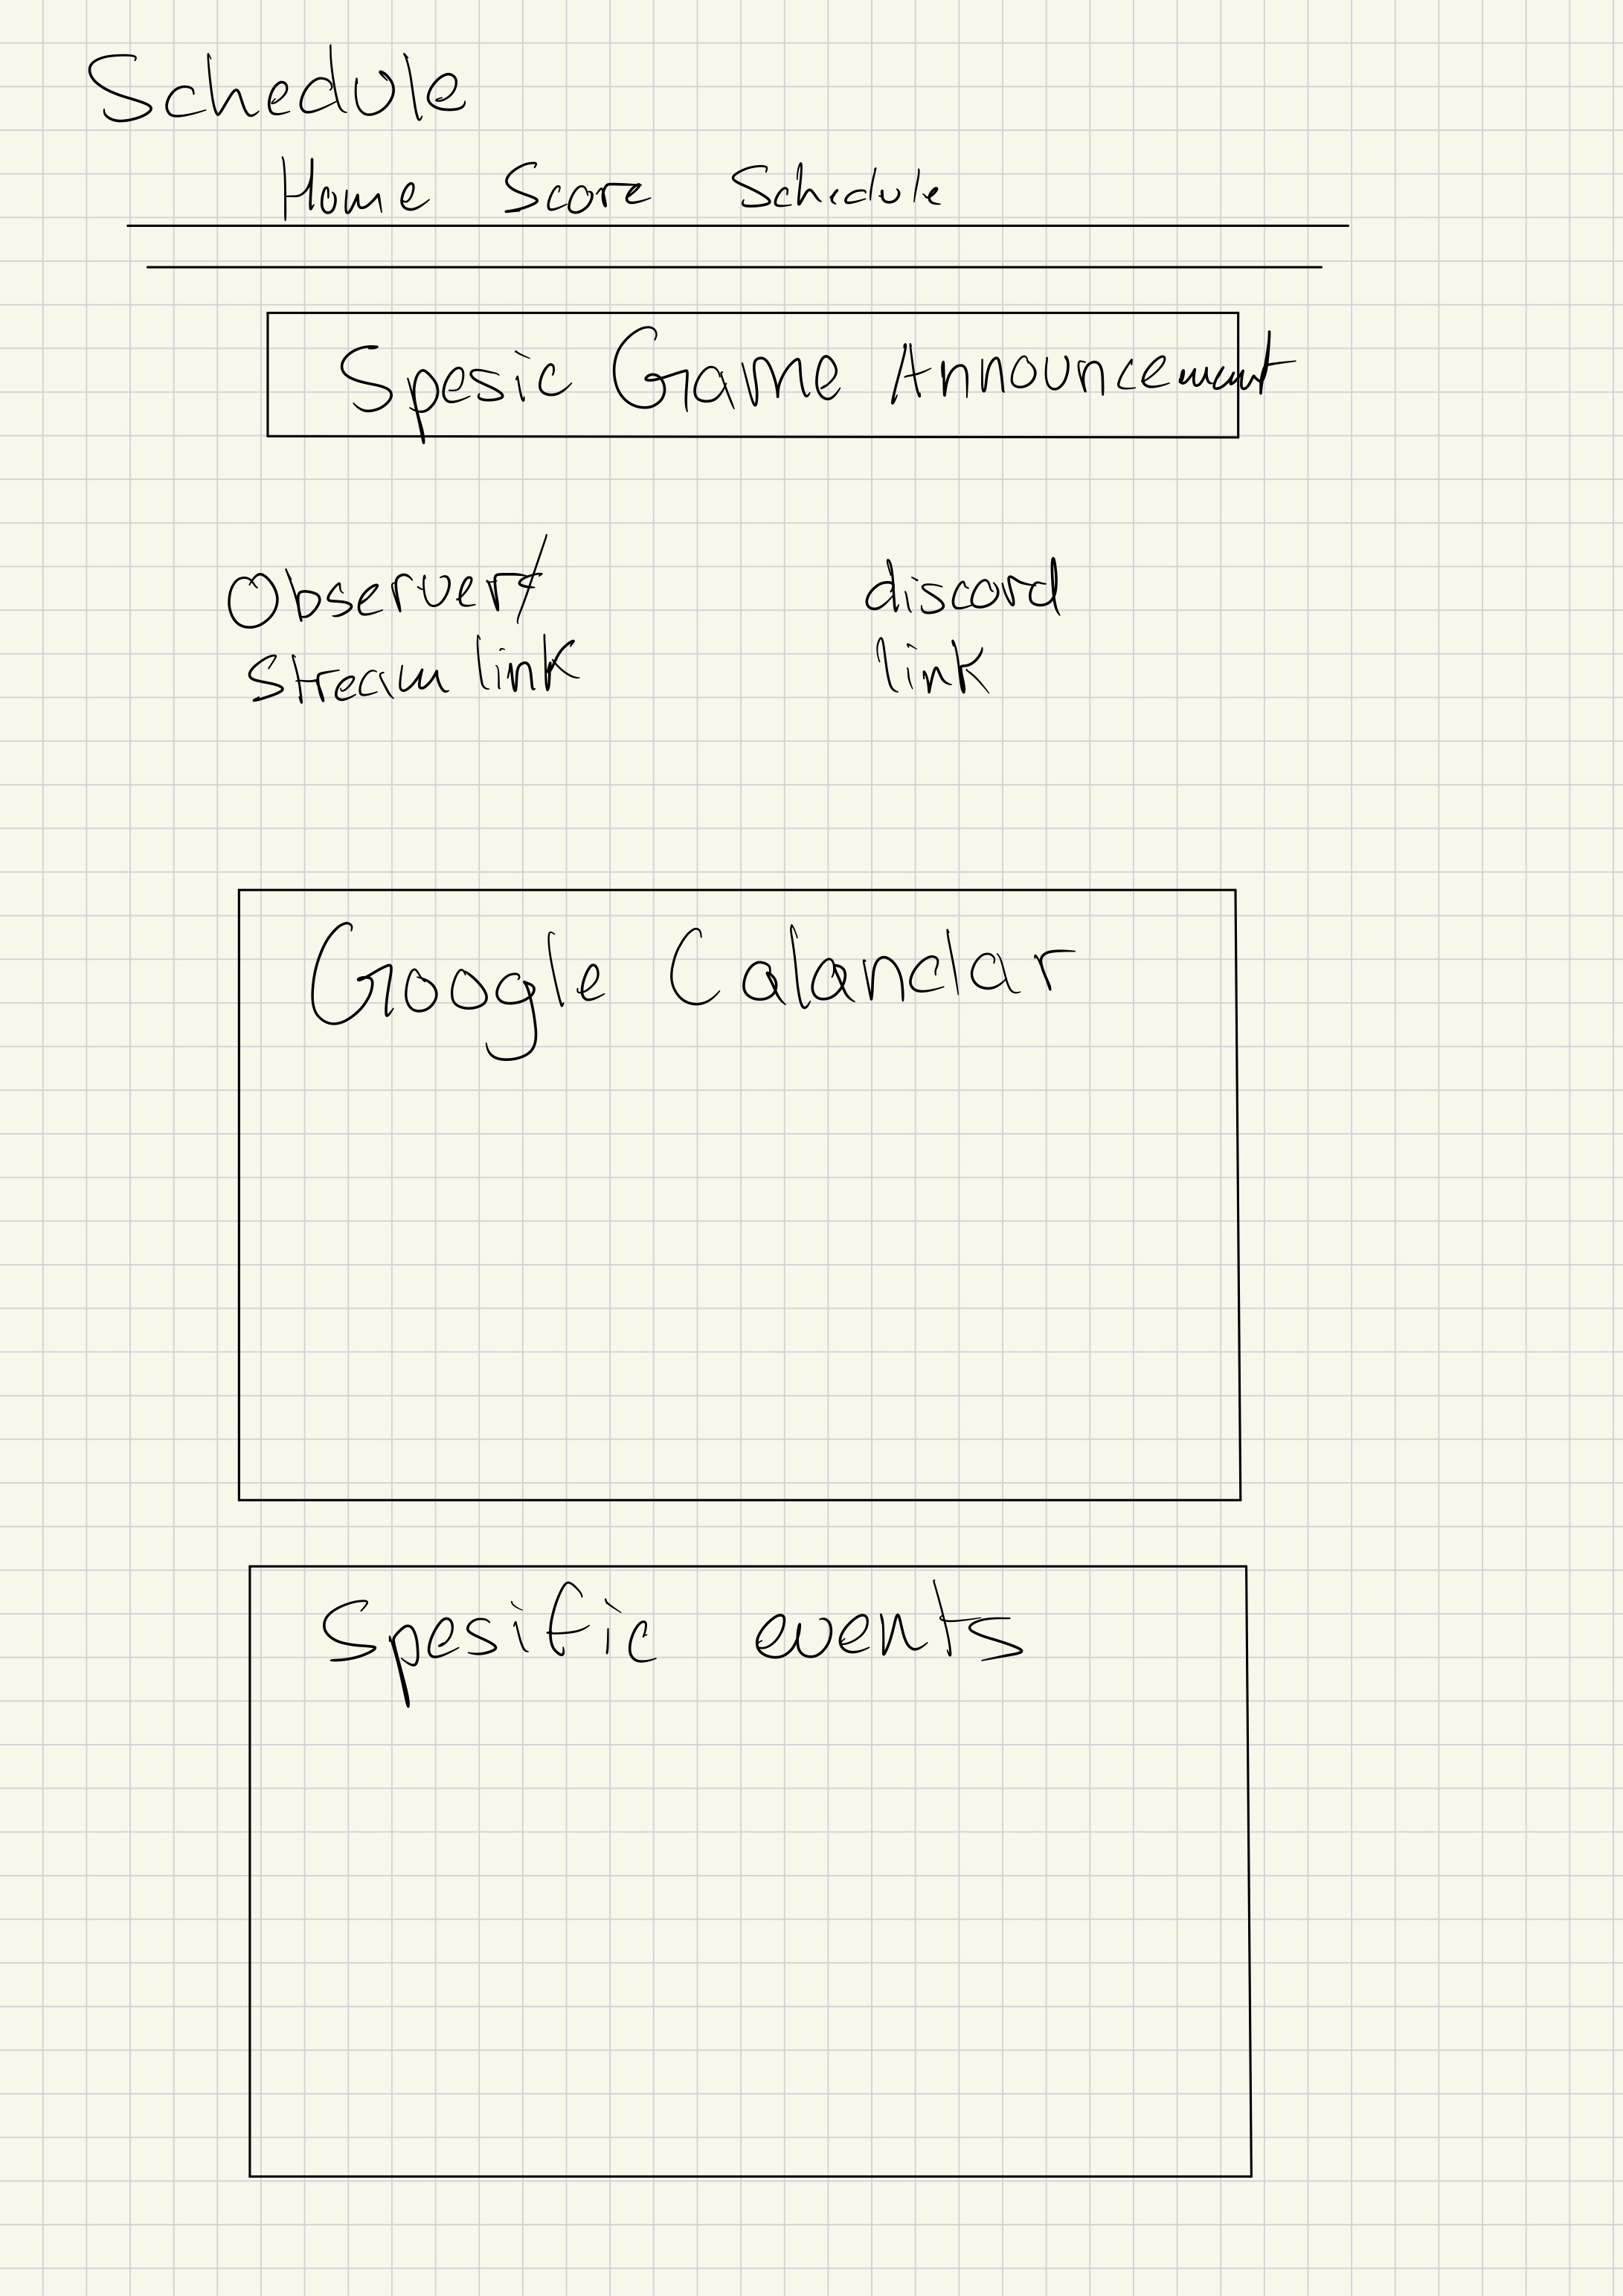 Schedule
Home Score Schedule
Spesic Game Announcement
Observer/ discord
Stream link link
Google Calandar
Spesific events